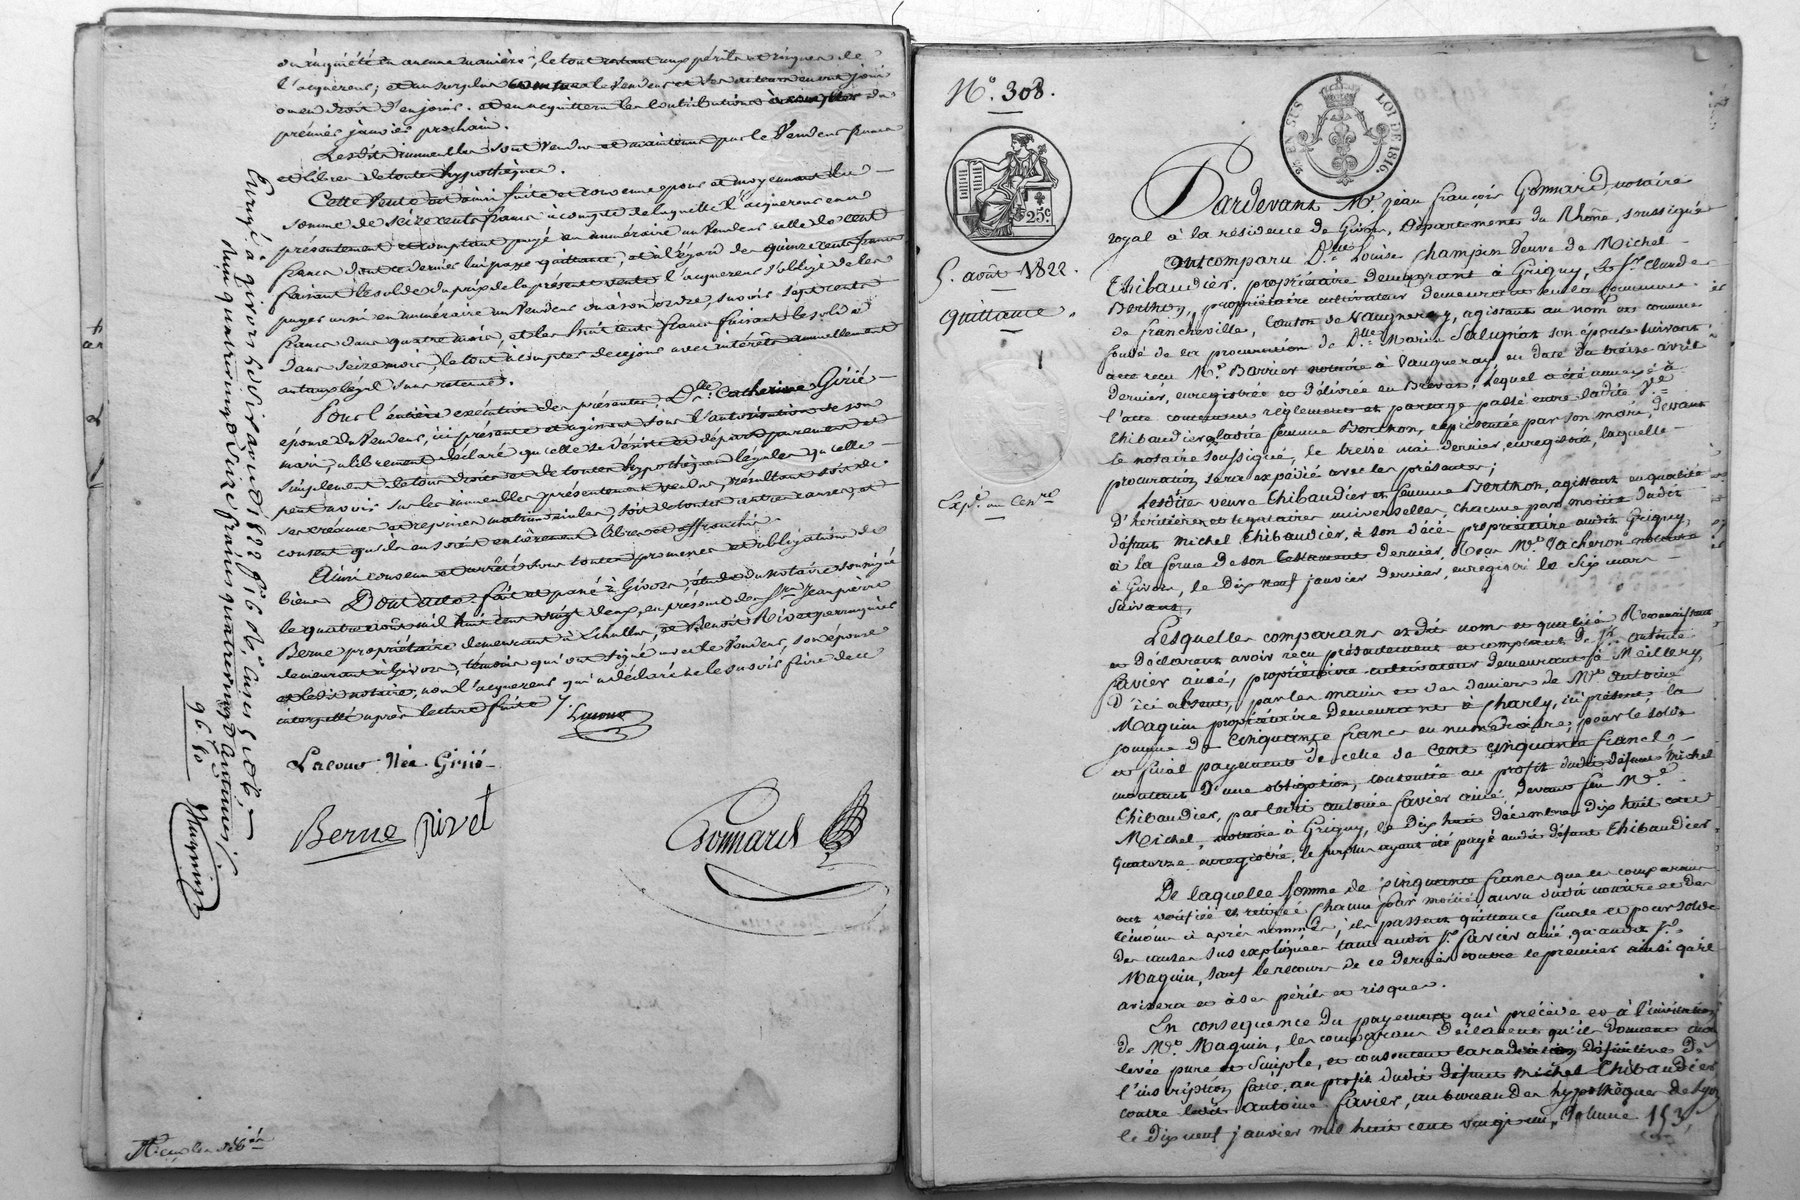 ou inquiété en aucune manière, le tout restant aux périls et risques de
l'acquereur; et au surplus comme le Vendeur et ses auteurs en ont joui
ou eu droit d'en jouir. et d'en acquitter les contributions du
premier janvier prochain.
Lesdits immeubles sont Vendus et maintenus par le Vendeur francs
et libres de toute hypothèque.
Cette Vente est ainsi faite et convenue pour et moyennant la
somme de seize cents francs à compte de laquelle l'acquereur en a
présentement et comptant payé en numéraire au Vendeur celle de cent
francs dont ce dernier lui passe quittance, et à l'égard des quinze cents francs
faisant le solde du prix de la présente vente l'acquereur s'oblige de les
payer aussi en numéraire au Vendeur ou à son ordre, savoir sept cents
francs dans quatre mois, et les huit cents francs faisant le solde
dans seize mois, le tout à compter de ce jour avec intérêts annuellement
au taux légal sans retenue.
Pour l'entière exécution des présentes, D.lle Catherine Girié
épouse du Vendeur, ici présente et agissant sous l'autorisation de son
mari, a librement déclaré qu'elle se désiste et départ purement et
simplement de tous droits et de toutes hypothèques légales qu'elle
peut avoir sur les immeubles présentement vendus, résultant soit de
ses créances et reprises matrimoniales, soit de toutes autres causes, et
consent qu'ils en soient entièrement libres et affranchis.
Ainsi convenu et arrêté sous toutes promesses et obligations de
biens Dont acte. fait et passé à Givors, étude du notaire soussigné
le quatre août mil huit cent vingt deux, en présence des Srs Jean pierre
Berne propriétaire demeurant à Echallas, et Benoît Rivet perruquier
demeurant à Givors, témoins qui ont signé avec le Vendeur, son épouse
et ledit notaire, non l'acquereur qui a déclaré ne le savoir faire de ce
interpellé après lecture faite
Lacour
Lacour Née Girié
Berne Rivet
Gonnard
Enregé à givors le dix août 1822 fo 16
quatre vingt seize francs quatre vingt centimes
96. 80
N.o 308.
25.c
5. août 1822.
Quittance.
Exp.é au Cen.re
2.e EN SUS
LOI DE 1816.
Pardevant M.e Jean François Gonnard, notaire
royal à la résidence de Givors, Département du Rhône, soussigné
Ont comparu D.e Louise Champin Veuve de Michel
Thibaudier, propriétaire demeurant à Grigny, Le S.r Claude
Berthon, propriétaire cultivateur demeurant en la Commune
de francheville, Canton de Vaugneray, agissant au nom et comme
fondé de la procuration de D.lle Marie Salignat son épouse suivant
acte reçu M.e Barrier notaire à Vaugneray en date du treize avril
dernier, enregistrée et délivrée en Brevet, lequel a été annexé à
l'acte contenant règlement et partage passé entre ladite V.ve
Thibaudier et ladite femme Berthon, représentée par son mari, devant
le notaire soussigné, le treize mai dernier, enregistré, laquelle
procuration sera expédiée avec les présentes;
Lesdites veuve Thibaudier et femme Berthon, agissant en qualité
d'héritières et légataires universelles, chacune pour moitié dudit
défunt Michel Thibaudier, à son décès propriétaire audit Grigny,
à la forme de son testament dernier, Reçu M.e Vacheron notaire
à Givors, le Dix neuf janvier dernier, enregistré le Six mars
suivant,
Lesquelles comparans et dits noms et qualité Reconnaissent
et Déclarent avoir reçu présentement et comptant de S.r antoine
favier ainé, propriétaire cultivateur demeurant à Meillery,
d'ici absent, par les mains et des deniers de M.r Antoine
Maguin propriétaire demeurant à Charly, ici présent, la
somme de Cinquante francs en numéraire, pour le solde
et final payement de celle de Cent cinquante francs
montant d'une obligation, contractée au profit dudit défunt Michel
Thibaudier, par ledit antoine favier ainé, devant feu M.e
Michel, notaire à Grigny, le Dix huit décembre Dix huit cent
quatorze enregistrée, le surplus ayant été payé audit défunt Thibaudier.
De laquelle somme de cinquante francs que les comparans
ont vérifiée et retirée chacun pour moitié, au vu dudit notaire et des
témoins ci après nommés, ils passent quittance finale et pour solde
des causes sus expliquées tant audit S.r favier ainé, qu'audit S.r
Maguin, sauf le recours de ce dernier contre le premier ainsi qu'il
avisera et à ses périls et risques.
En conséquence du payement qui précède et à l'invitation
de M.r Maguin, les comparans déclarent qu'ils donnent main
levée pure et simple, et consentent la radiation définitive de
l'inscription faite au profit dudit défunt Michel Thibaudier
contre ledit Antoine favier, au bureau des hypothèques de Lyon
le Dix neuf janvier mil huit cent vingt un, Volume 153,